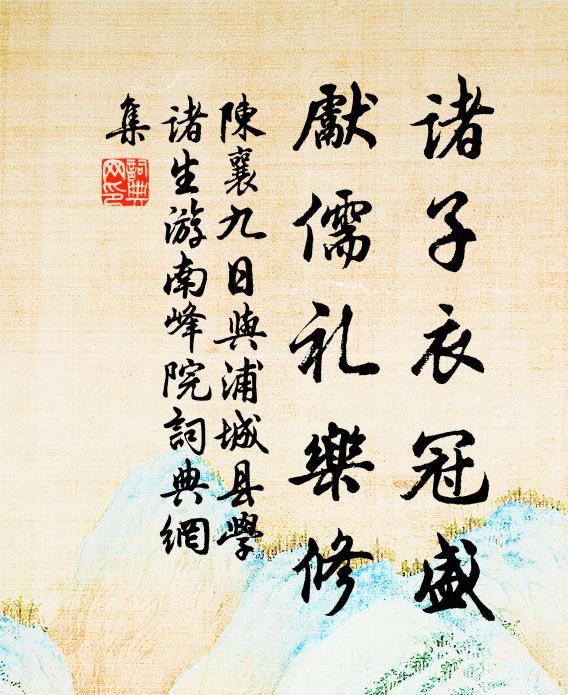 諸子衣冠盛
獻儒礼樂修
陳襄九日與浦城县學
诸生游南峰院詞典網
集
詞典網印